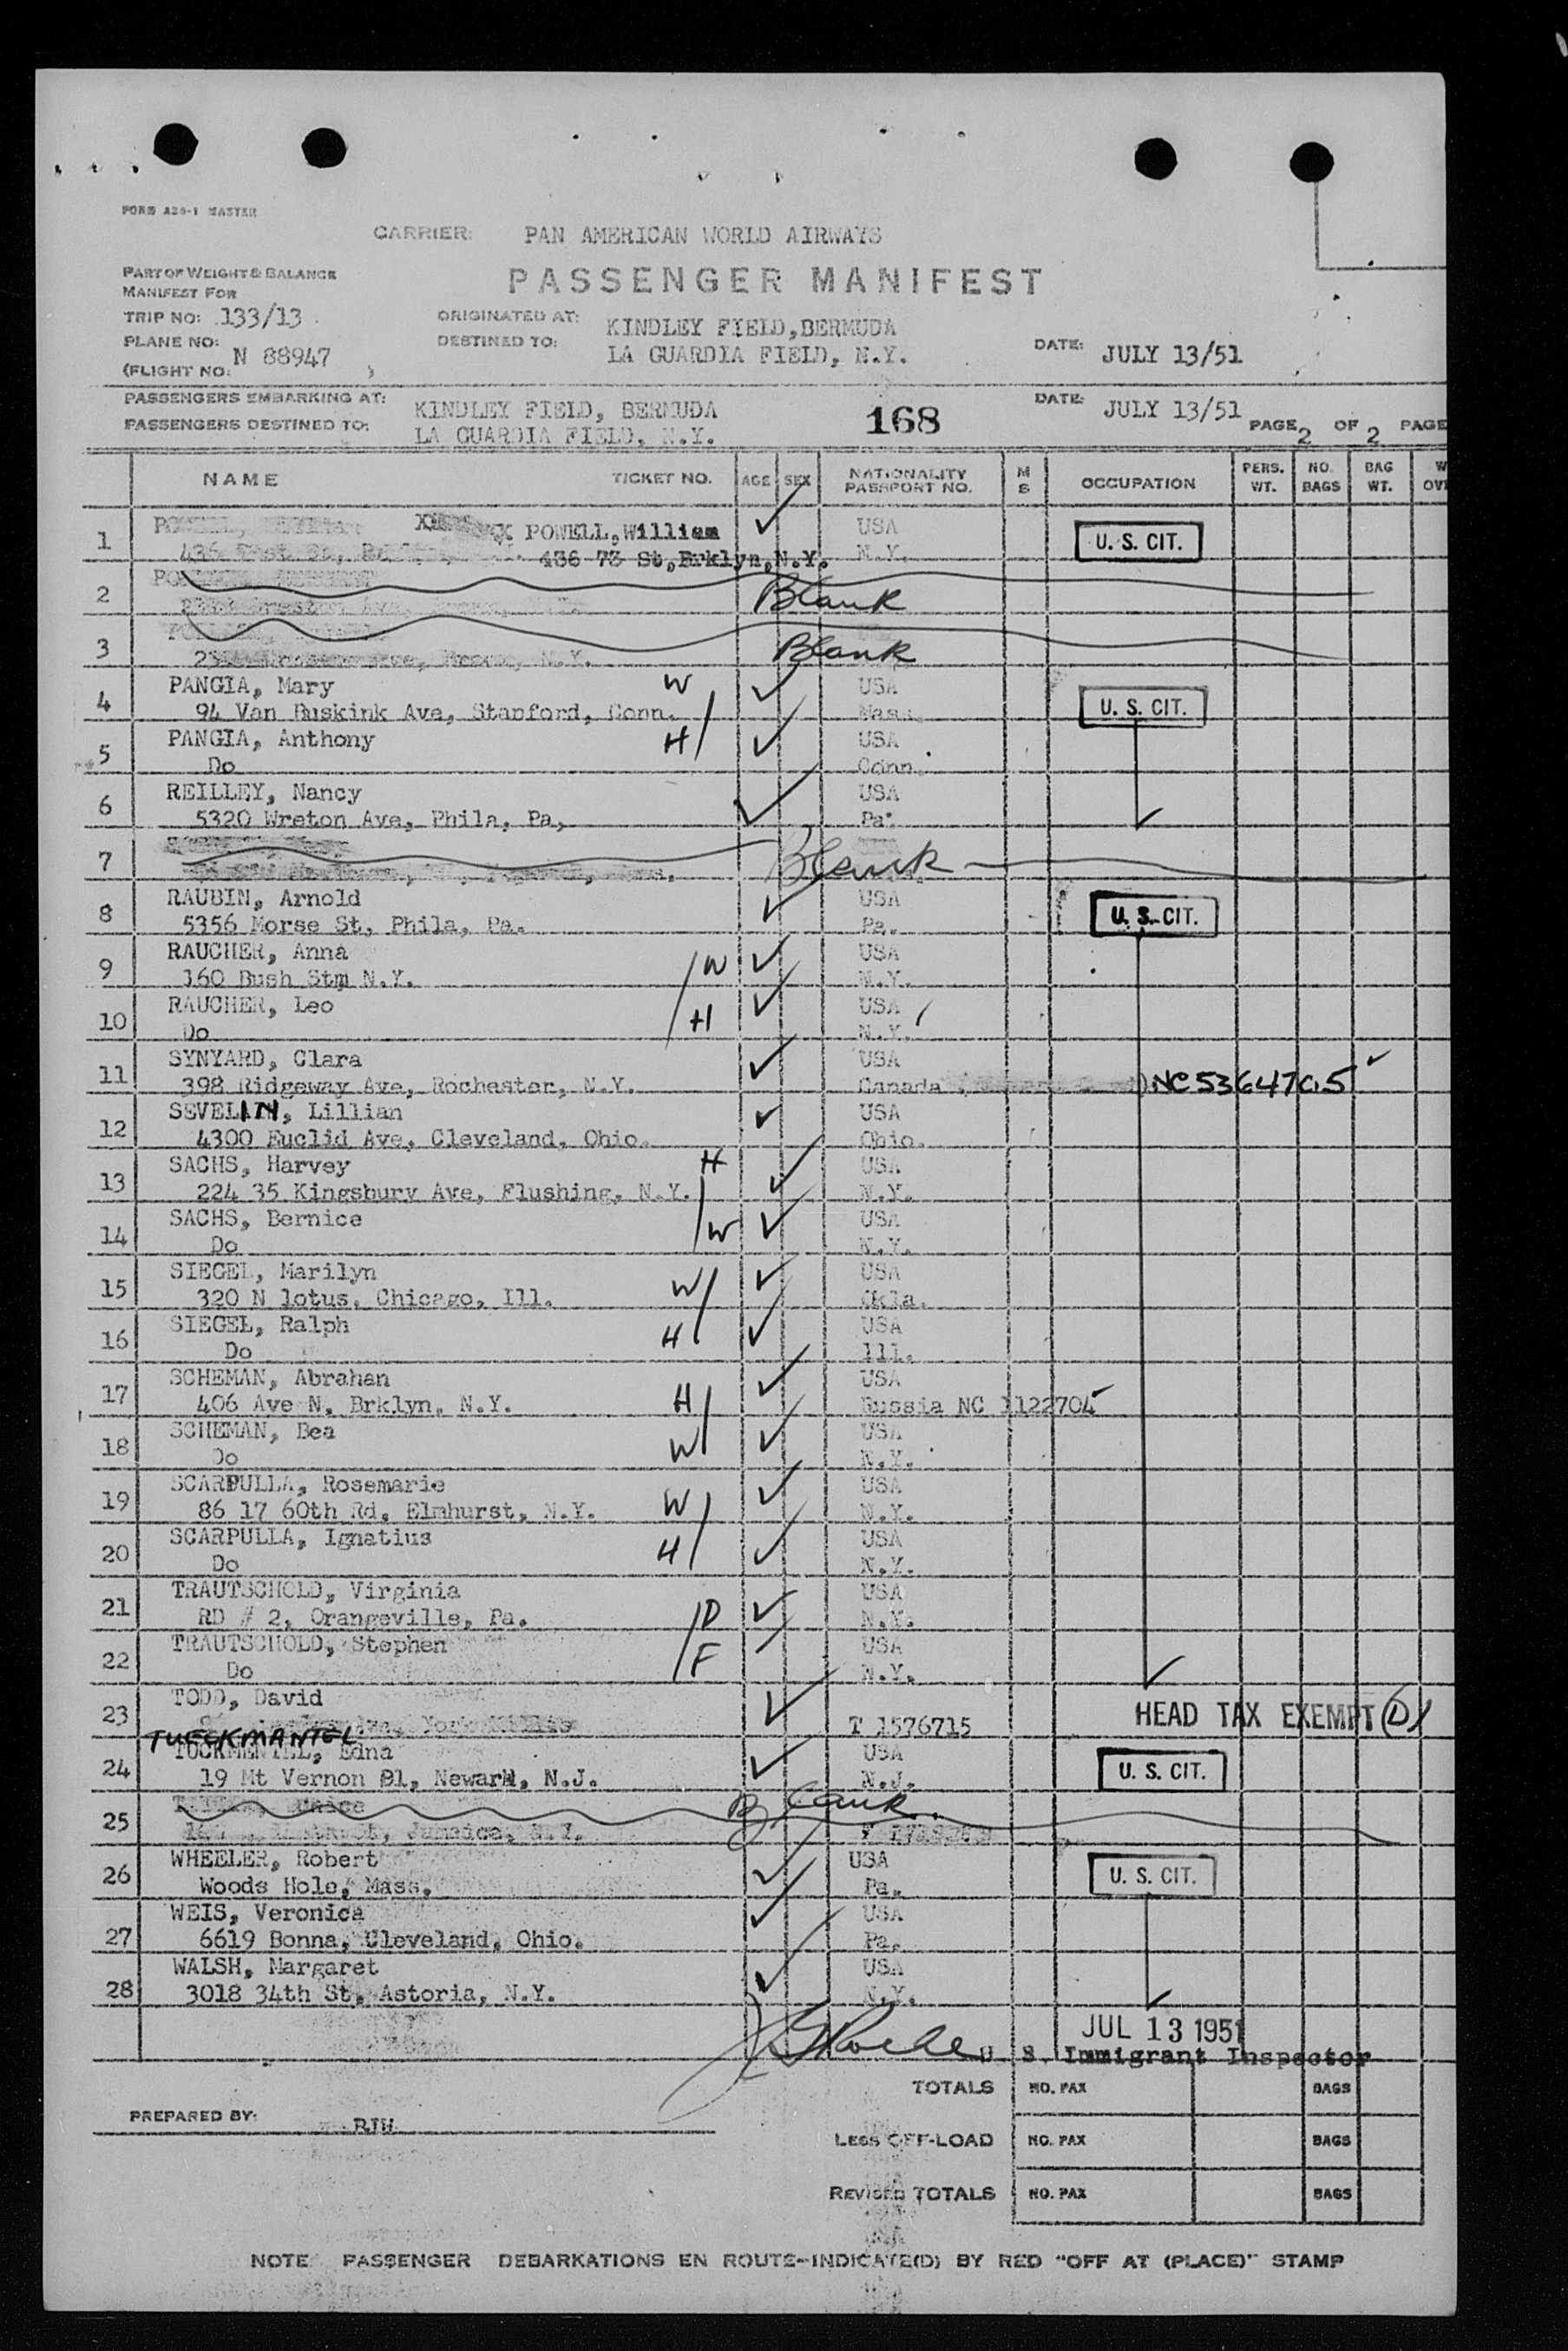 FORM A20-1 MASTER
CARRIER: PAN AMERICAN WORLD AIRWAYS
PART OF WEIGHT & BALANCE
MANIFEST FOR
PASSENGER MANIFEST
TRIP NO: 133/13
ORIGINATED AT: KINDLEY FIELD, BERMUDA
PLANE NO: N 88947
DESTINED TO: LA GUARDIA FIELD, N.Y.
DATE: JULY 13/51
(FLIGHT NO: )
PASSENGERS EMBARKING AT: KINDLEY FIELD, BERMUDA
DATE: JULY 13/51
PASSENGERS DESTINED TO: LA GUARDIA FIELD, N.Y.
168
PAGE 2 OF 2 PAGE
NAME TICKET NO. AGE SEX NATIONALITY PASSPORT NO. M S OCCUPATION PERS. WT. NO. BAGS BAG WT. W OV
1 POWELL, William USA U. S. CIT.
436 73 St, Brklyn, N.Y. N.Y.
2 Blank
3 Blank
N.Y.
4 PANGIA, Mary W USA U. S. CIT.
94 Van Buskink Ave, Stanford, Conn. Mass.
5 PANGIA, Anthony H USA
Do Conn.
6 REILLEY, Nancy USA
5320 Wreton Ave, Phila, Pa, Pa.
7 Blank
8 RAUBIN, Arnold USA U. S. CIT.
5356 Morse St, Phila, Pa. Pa.
9 RAUCHER, Anna W USA
160 Bush Stm N.Y. N.Y.
10 RAUCHER, Leo H USA
Do N.Y.
11 SYNYARD, Clara USA
398 Ridgeway Ave, Rochester, N.Y. Canada NC 5364705
12 SEVELIN, Lillian USA
4300 Euclid Ave, Cleveland, Ohio. Ohio.
13 SACHS, Harvey H USA
224 35 Kingsbury Ave, Flushing, N.Y. N.Y.
14 SACHS, Bernice W USA
Do N.Y.
15 SIEGEL, Marilyn W USA
320 N lotus, Chicago, Ill. Okla.
16 SIEGEL, Ralph H USA
Do Ill.
17 SCHEMAN, Abrahan H USA
406 Ave N, Brklyn, N.Y. Russia NC 1122704
18 SCHEMAN, Bea W USA
Do N.Y.
19 SCARPULLA, Rosemarie W USA
86 17 60th Rd, Elmhurst, N.Y. N.Y.
20 SCARPULLA, Ignatius H USA
Do N.Y.
21 TRAUTSCHOLD, Virginia D USA
RD # 2, Orangeville, Pa. N.Y.
22 TRAUTSCHOLD, Stephen F USA
Do N.Y.
23 TODD, David HEAD TAX EXEMPT (D)
T 1576715
TUECKMANTEL
24 Edna USA U. S. CIT.
19 Mt Vernon Pl, Newark, N.J. N.J.
25 Blank.
Jamaica, N.Y.
26 WHEELER, Robert USA U. S. CIT.
Woods Hole, Mass. Pa.
27 WEIS, Veronica USA
6619 Bonna, Cleveland, Ohio. Pa.
28 WALSH, Margaret USA
3018 34th St, Astoria, N.Y. N.Y.
JUL 13 1951
U S. Immigrant Inspector
TOTALS NO. PAX BAGS
PREPARED BY: RJH
LESS OFF-LOAD NO. PAX BAGS
REVISED TOTALS NO. PAX BAGS
NOTE PASSENGER DEBARKATIONS EN ROUTE-INDICATE(D) BY RED "OFF AT (PLACE)" STAMP